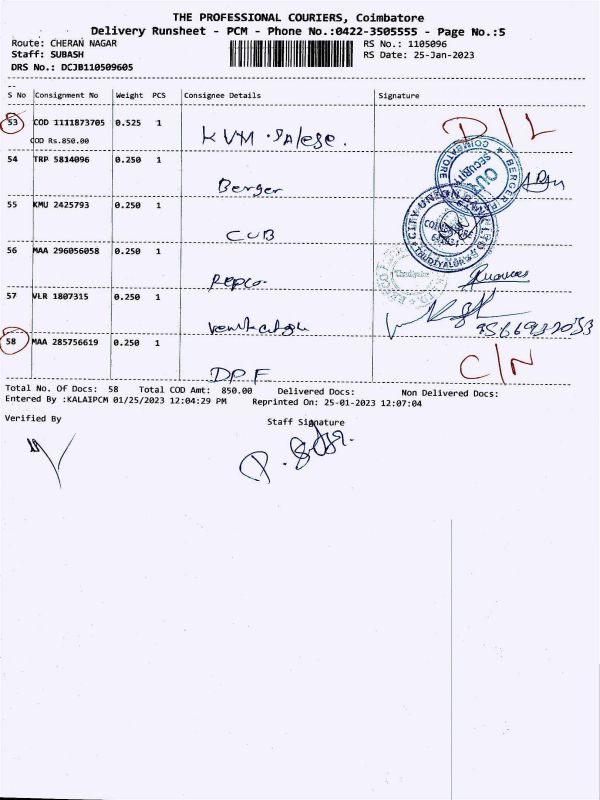 THE PROFESSIONAL COURIERS, Coimbatore
Delivery Runsheet - PCM - Phone No.:0422-3505555 - Page No.:5
Route: CHERAN NAGAR RS No.: 1105096
Staff: SUBASH RS Date: 25-Jan-2023
DRS No.: DCJB110509605
S No Consignment No Weight PCS Consignee Details Signature
53 COD 1111873705 0.525 1 D/L
COD Rs.850.00 KVM
54 TRP 5814096 0.250 1
Berger
COIMBATORE BERGER SECURITY OUT
55 KMU 2425793 0.250 1
CUB
CITY UNION THUDIYALOR
56 MAA 296056058 0.250 1
Repco
57 VLR 1807315 0.250 1
58 MAA 285756619 0.250 1 C/N
DPF
Total No. Of Docs: 58 Total COD Amt: 850.00 Delivered Docs: Non Delivered Docs:
Entered By :KALAIPCM 01/25/2023 12:04:29 PM Reprinted On: 25-01-2023 12:07:04
Verified By Staff Signature